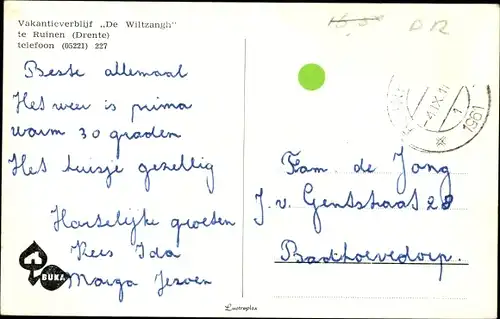 Vakantieverblijf „De Wiltzangh"
te Ruinen (Drente)
telefoon (05221) 227
Beste allemaal
Het weer is prima
warm 30 graden
Het huisje gezellig
Hartelijke groeten
Kees Ida
Marga Jeroen
BUKA
Lustroplex
Fam. de Jong
J. v. Gentstraat 28
Badhoevedorp.
-4.IX.
1961
1